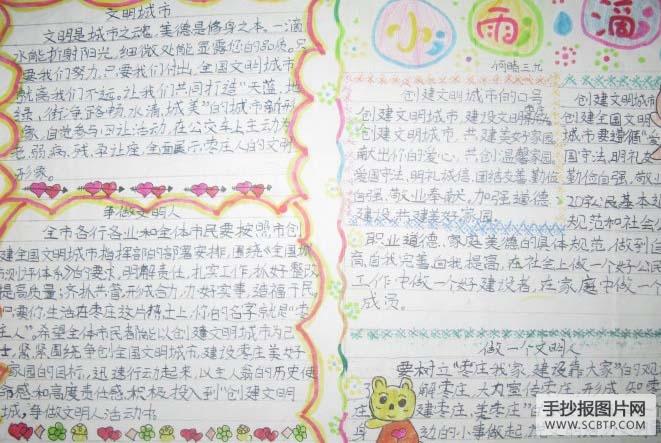 文明城市
文明是城市之魂,美德是修身之本。一滴
水能折射阳光,细微处能显露您的品质。只
要我们努力,只要我们付出,全国文明城市
就离我们不远。让我们共同打造"天蓝、地
绿、街净、路畅、水清、城美"的城市新形
象,自觉参与
活动,在公交车上主动为
老、弱、病、残、孕让座,全面展示枣庄人的文明
形象。
争做文明人
全市各行各业和全体市民要按照市创
建全国文明城市指挥部的部署安排,围绕《全国城
的要求,明解责任,扎实工作,抓好整改
提高质量,齐抓共管,形成合力,办好实事,造福市民。
生活在枣庄这片精土上,你的名字就是"枣
庄人"。希望全体市民都能以创建文明城市为己
紧紧围绕争创全国文明城市,建设枣庄美好
家园的目标,迅速行动起来,以主人翁的历史使
命感和高度责任感,积极投入到"创建文明
城,争做文明人活动中
小雨滴
创建文明城市的口号
创建文明城市,建设文明枣庄
创建文明城市,共建美好家园
献出你的爱心,共创温馨家园
爱国守法,明礼诚信,团结友善,勤俭
自强,敬业奉献。加强道德
建设,共建美好家园。
创建文明城
创建全国文明
城市要遵循"爱
国守法,明礼友
勤俭自强,敬业
20字公民基本道
规范和社会公
职业道德、家庭美德的具体规范,做到自
高,自我完善,自我提高,在社会上做一个好公民
工作中做一个好建设者,在家庭中做一个
成员。
做一个文明人
要树立"枣庄我家,建设靠大家"的观
解枣庄、大力宣传枣庄,形成知枣
庄
建枣庄、美枣庄"
身
动的小事做起
手抄报图片网
WWW.SCBTP.COM